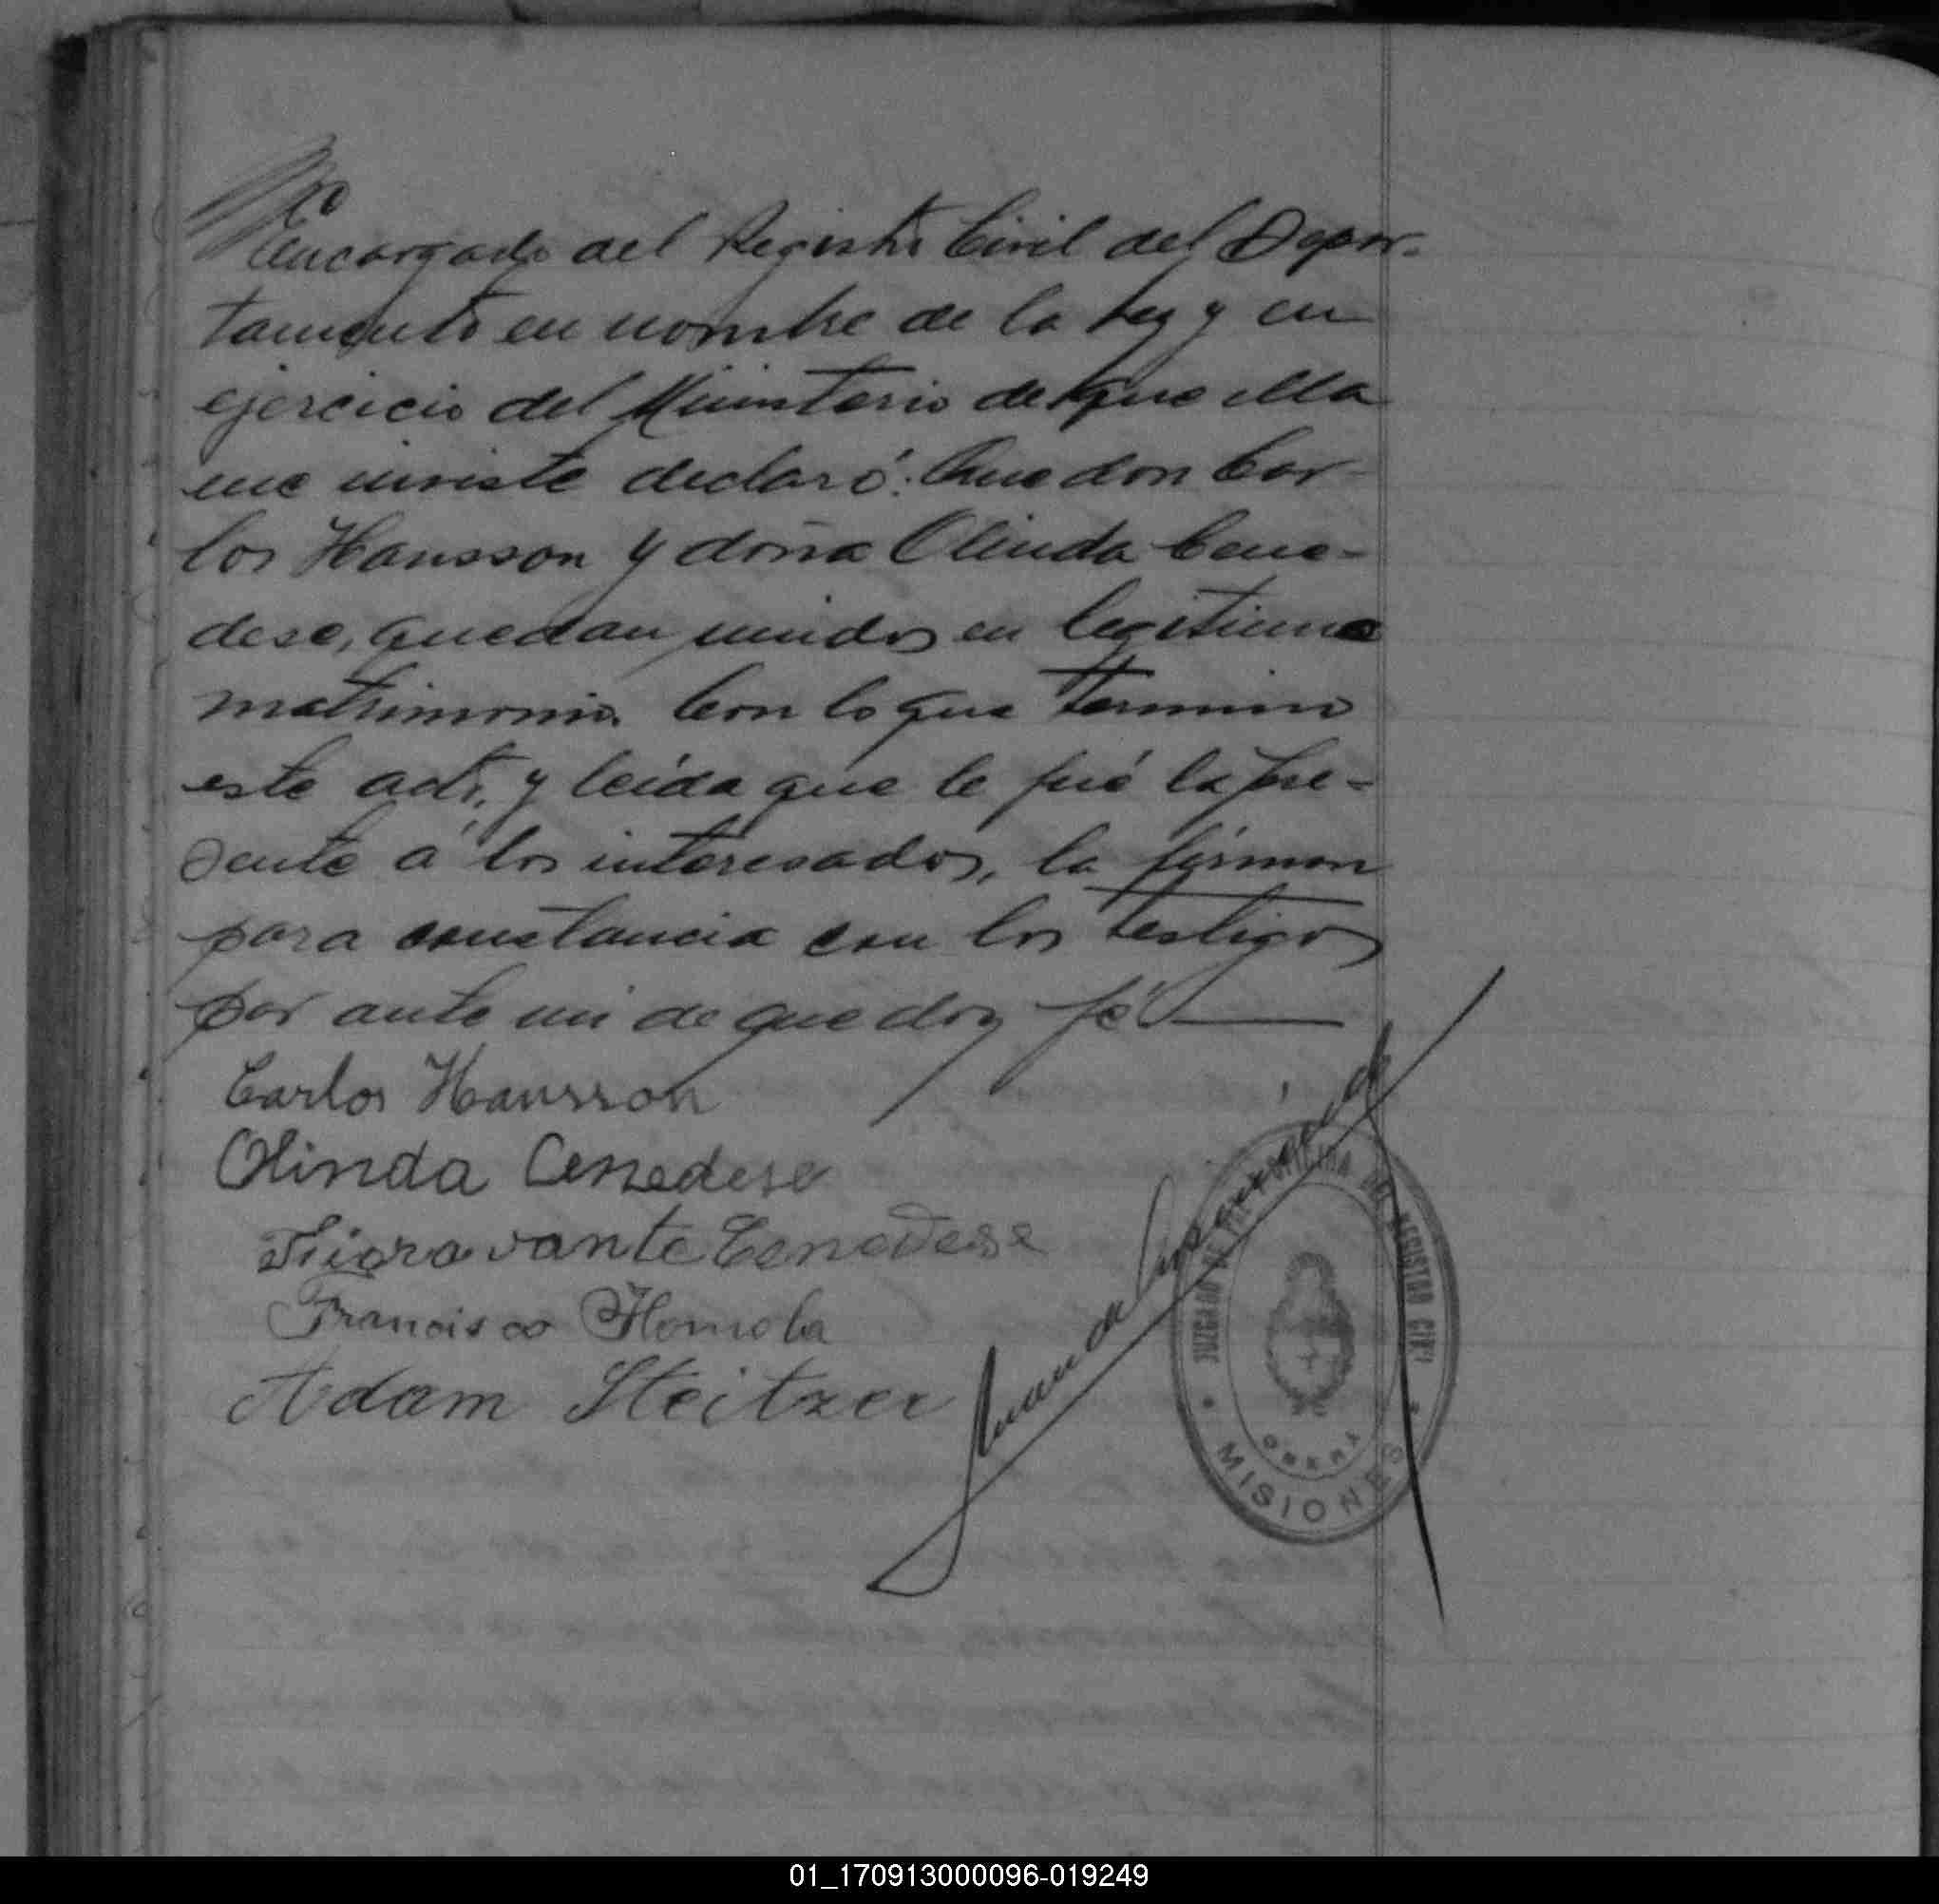 encargado del Registro Civil del Depar-
tamento en nombre de la Ley y en
ejercicio del Ministerio de que ella
me inviste declaró: Que don Car-
los Hansson y doña Olinda Cene-
dese, quedan unidos en legitimo
matrimonio. Con lo que termino
este acto, y leída que le fué la pre-
sente á los interesados, la firman
para constancia con los testigos
por ante mi de que doy fé.
Carlos Hansson
Olinda Cenedese
Cenedese
Francisco Homola
Adam Steitzer
JUZGADO DE PAZ DEL REGISTRO CIVIL
OBERA
MISIONES
01_170913000096-019249